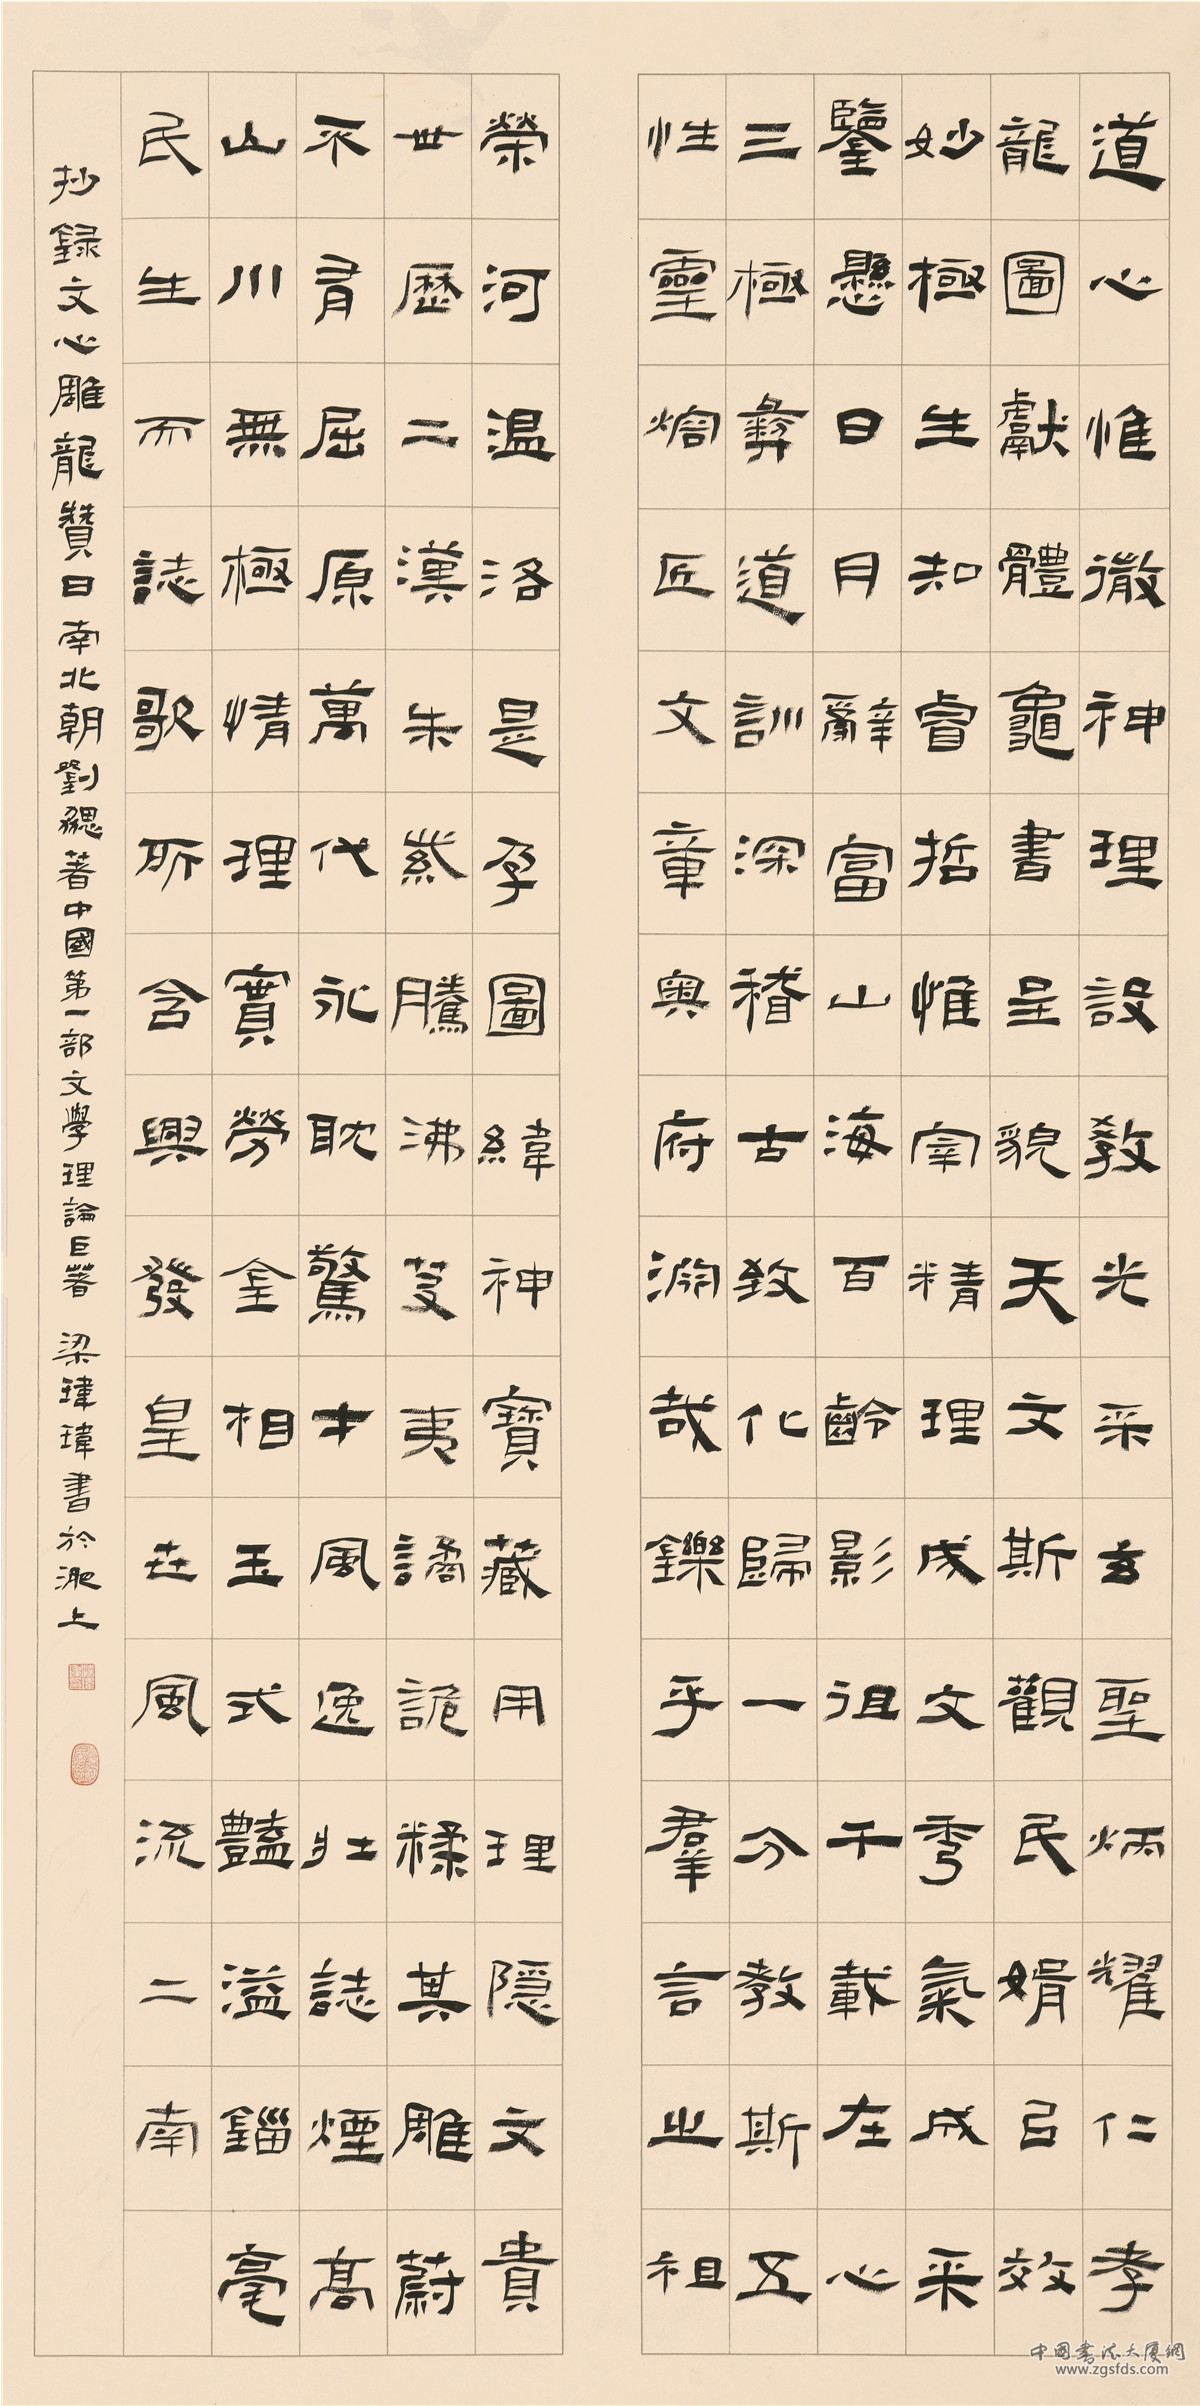 道心惟微神理設教光采玄聖炳耀仁孝
龍圖獻體龜書呈貌天文斯觀民娟㠯效
妙極生知睿哲惟宰精理成文秀氣成采
鑒懸日月辭富山海百齡影徂千載在心
三極彝道訓深稽古致化歸一分教斯五
性靈熔匠文章奧府淵哉鑠乎羣言之祖
榮河温洛是孕圖緯神寶藏用理隱文貴
世歷二漢朱紫騰沸芟夷譎詭糅其雕蔚
不有屈原萬代永耽驚才風逸壯誌煙高
山川無極情理實勞金相玉式豔溢錙毫
民生而誌歌所含興發皇世風流二南
抄録文心雕龍贊曰南北朝劉勰著中國第一部文學理論巨著 梁瑋瑋書於淝上
中国書法大廈網
www.zgsfds.com